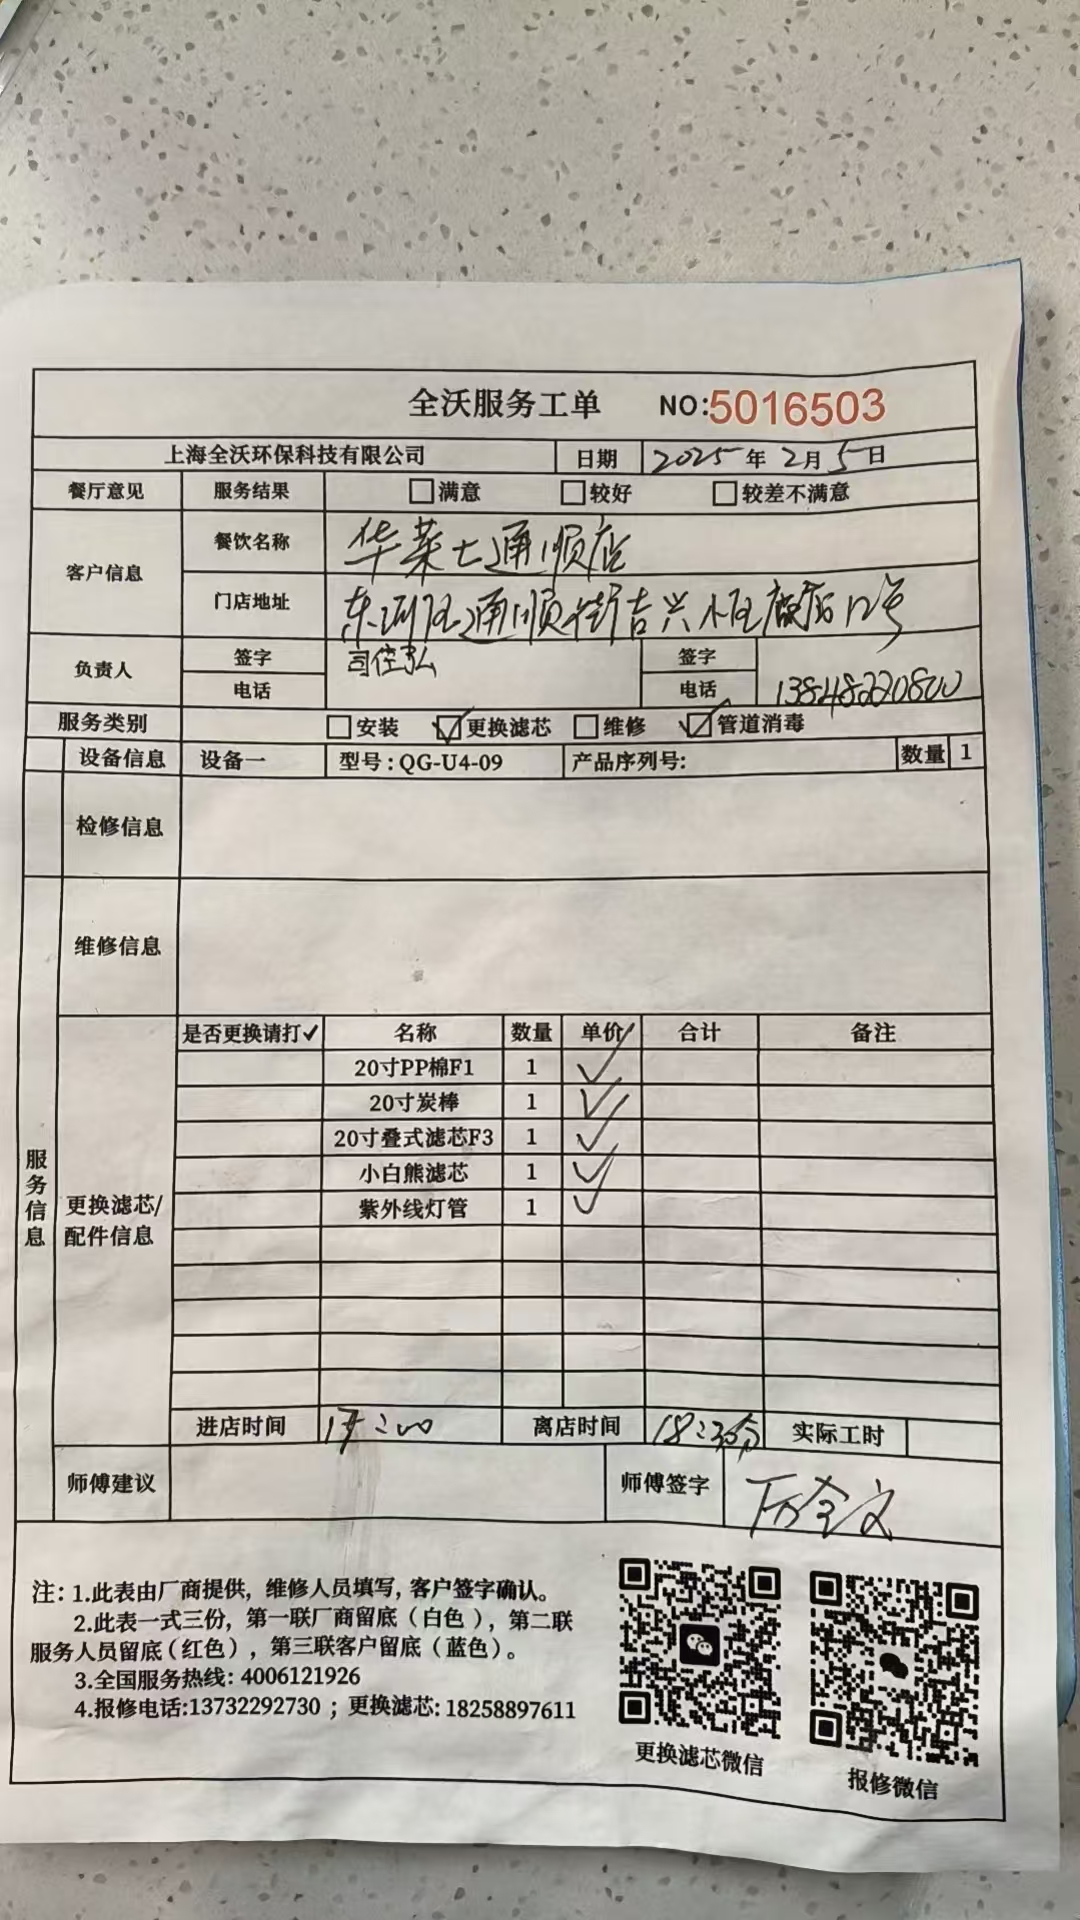 全沃服务工单 NO:5016503
上海全沃环保科技有限公司 日期 2025年2月5日
餐厅意见 服务结果 □满意 □较好 □较差不满意
客户信息 餐饮名称 华莱士通顺店
门店地址 东河区通顺街吉兴小区底店12号
负责人 签字 司佳弘 签字
电话 电话 13848220800
服务类别 □安装 ☑更换滤芯 □维修 ☑管道消毒
设备信息 设备一 型号:QG-U4-09 产品序列号: 数量 1
检修信息
维修信息
服务信息
更换滤芯/配件信息
是否更换请打✓ 名称 数量 单价 合计 备注
20寸PP棉F1 1 ✓
20寸炭棒 1 ✓
20寸叠式滤芯F3 1 ✓
小白熊滤芯 1 ✓
紫外线灯管 1 ✓
进店时间 17:00 离店时间 18:30分 实际工时
师傅建议 师傅签字
注: 1.此表由厂商提供, 维修人员填写, 客户签字确认。
2.此表一式三份, 第一联厂商留底 (白色), 第二联
服务人员留底 (红色), 第三联客户留底 (蓝色)。
3.全国服务热线: 4006121926
4.报修电话:13732292730 ; 更换滤芯: 18258897611
更换滤芯微信
报修微信